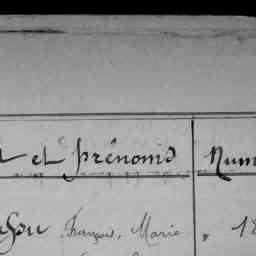 et prénoms Num
François, Marie " 18